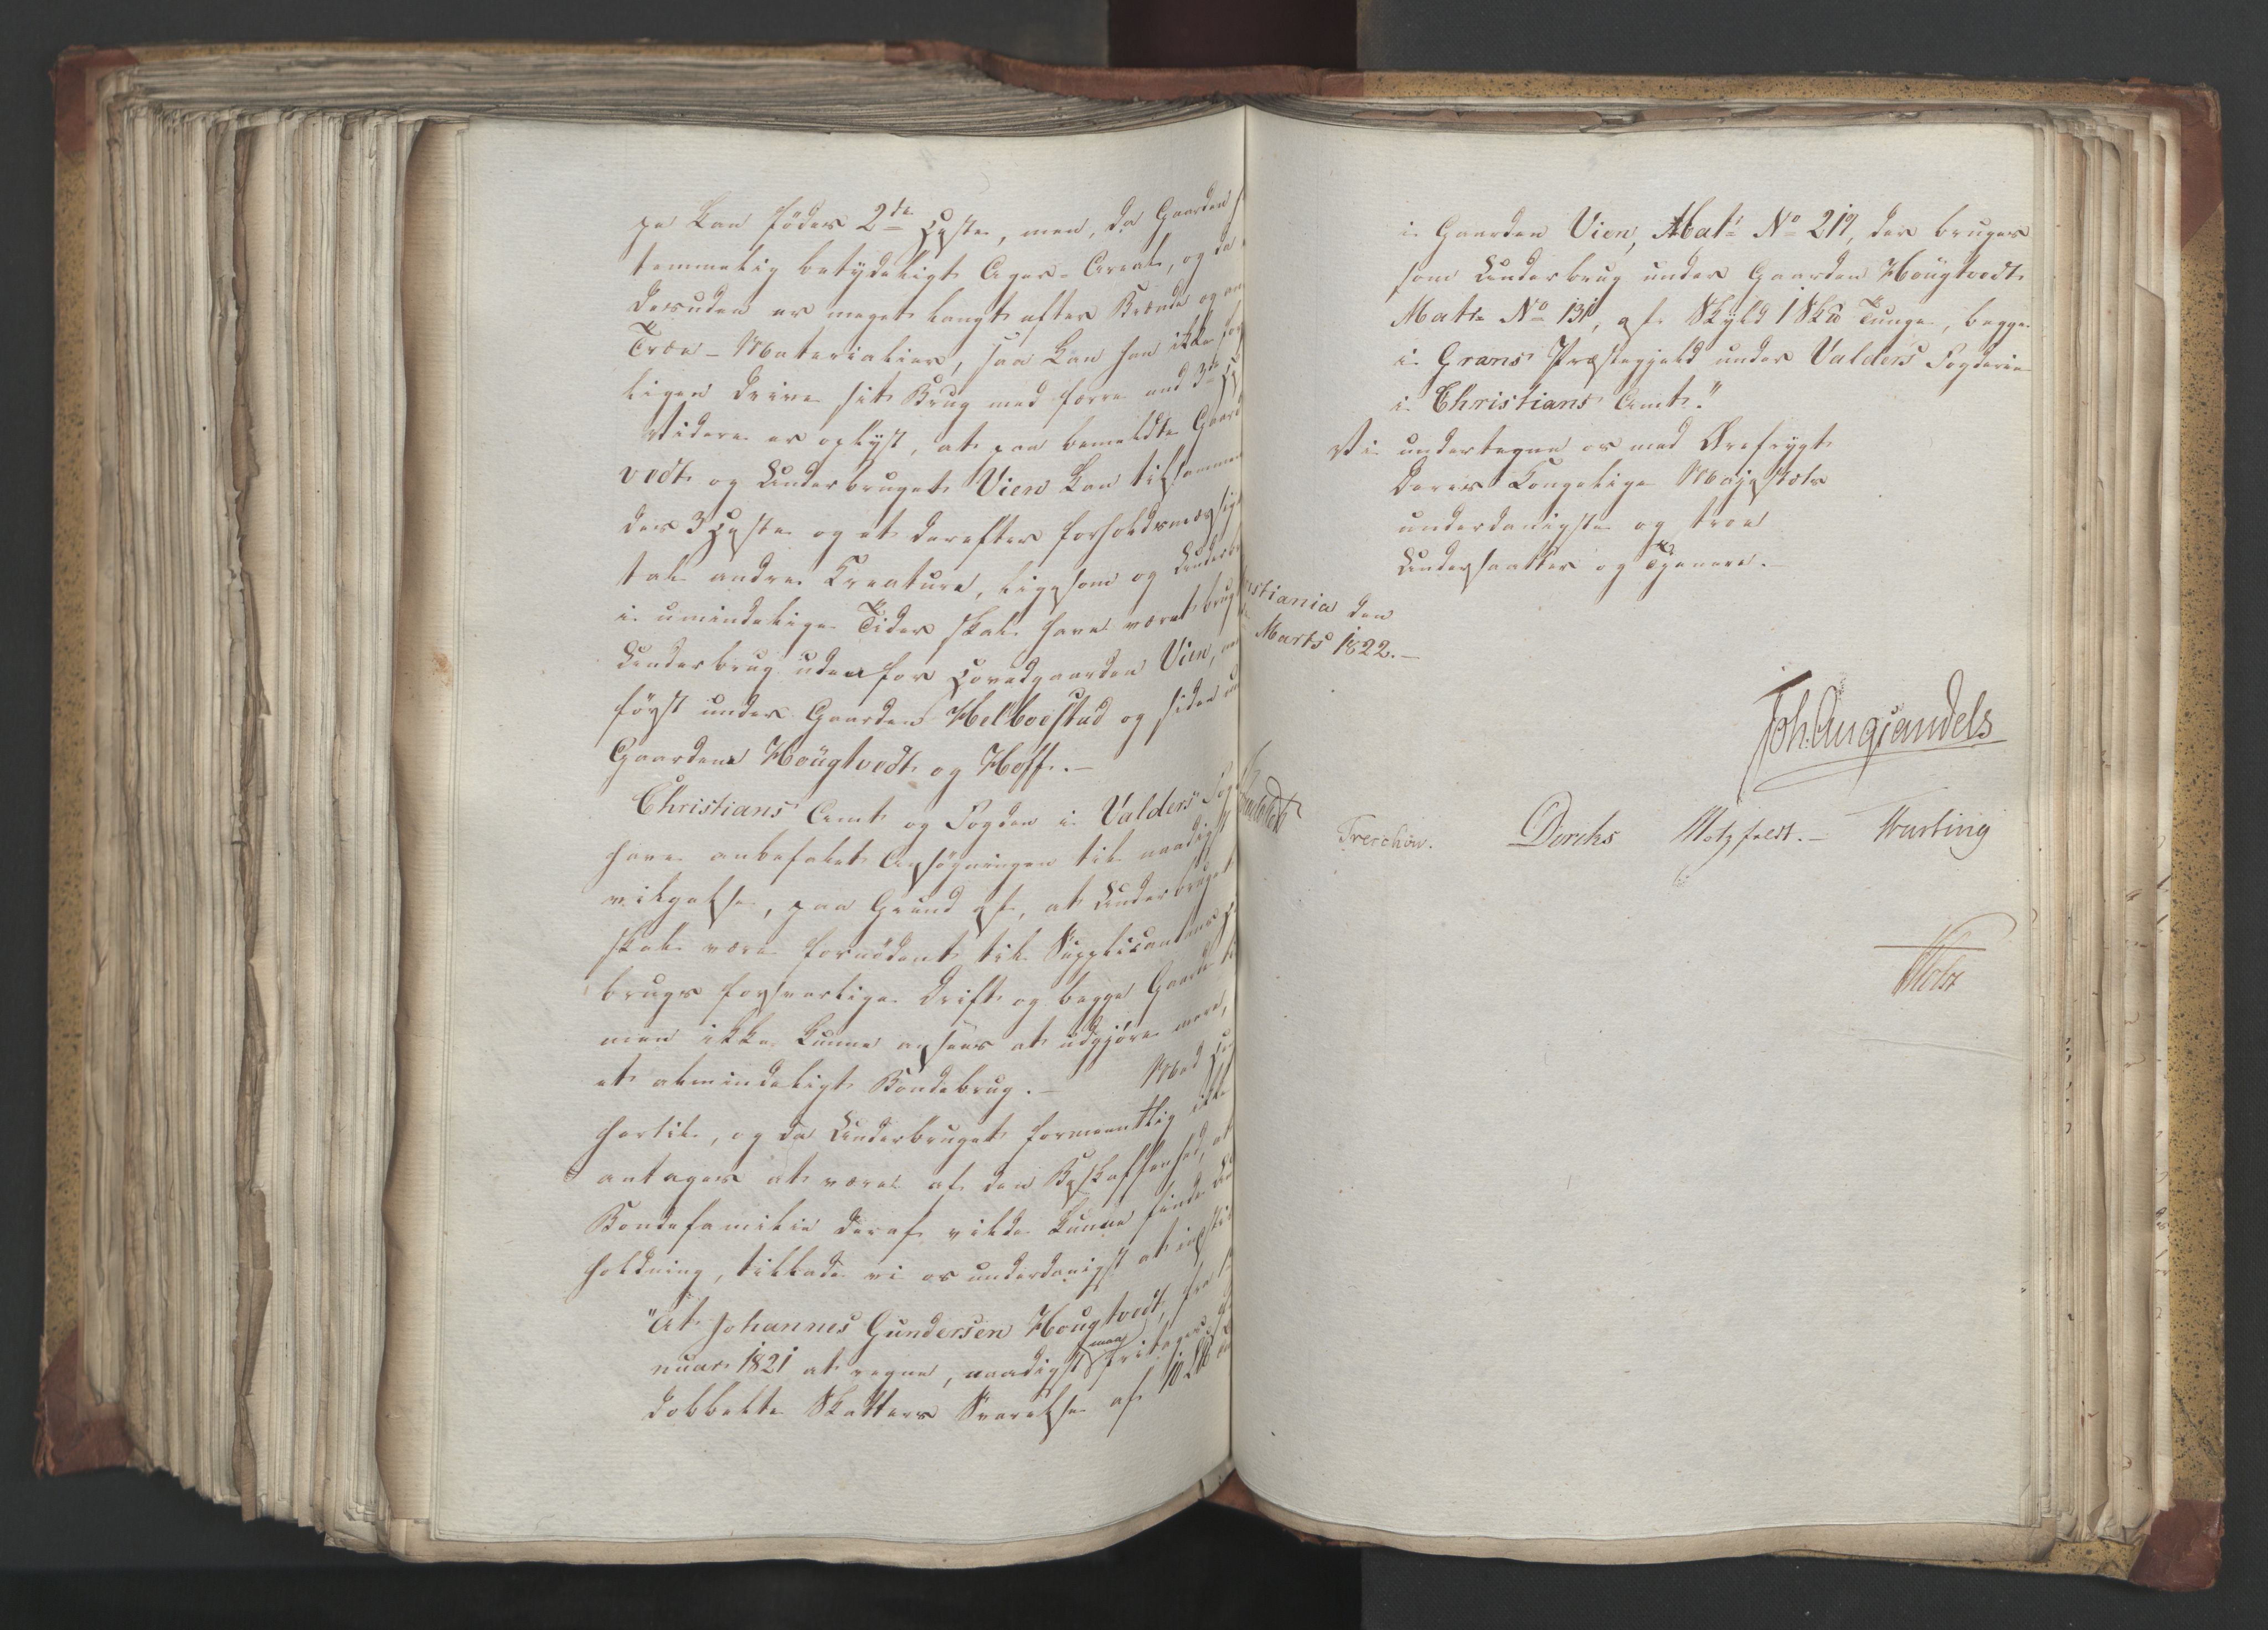 pe kan födes 2de Heste, men, da Gaarden
temmelig betydeligt Ager-Areal, og da
desuden er meget langt efter Brænde og
Træe-Materialier, saa kan han ikke
ligen drive sit Brug med færre end 3de
Videre er oplyst, at paa bemeldte Gaard
vedt og Underbruget Vien kan tilsammen
des 3 Heste og et derefter forholdsmæssigt
tal andre Kreature, ligesom og Underbr
i umindelige Tider skal have været brugt
Underbrug udenfor Hovedgaarden Vien,
först under Gaarden Helboestad og siden
Gaardene Höugtvedt og Hoff.—
Christians Amt og Fogden i Valders Fog
have anbefalet Ansögningen til naadigst
vilgelse, paa Grund af, at Underbruget
skal være fornödent til Supplicantens
brugs forsvarlige Drift og begge Gaarde
men ikke kunne ansees at udgjöre mere,
et almindeligt Bondebrug.— Med
hertil, og da Underbruget formeentlig ikke
antages at være af den Beskaffenhed, at
Bondefamilie deraf vilde kunne finde
holdning, tillade vi os underdanigst at indstil
"At Johannes Gundersen Hougtvedt, fra
nuar 1821 at regne, naadigst maa fritages
dobbelte Skatters Svarelse af
i Gaarden Vien, Mat: No 219, der bruges
som Underbrug under Gaarden Höugtvedt
Mat: No 131, af Skyld 1 Skd Tunge, begge
i Grans Præstegjeld under Valders Fogderie
i Christians Amt."
Vi undertegne os med Ærefrygt
Deres Kongelige Majestæts
underdanigste og troe
Undersaatter og Tjenere.
istiania den
Marts 1822.—
Joh. Aug Sandels
Treschow. Diriks Motzfeldt.— Krefting
Holst